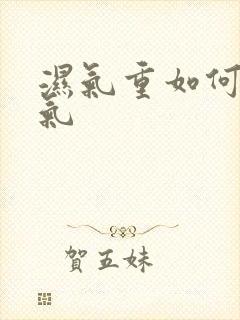 濕氣重如何
氣
賀五妹